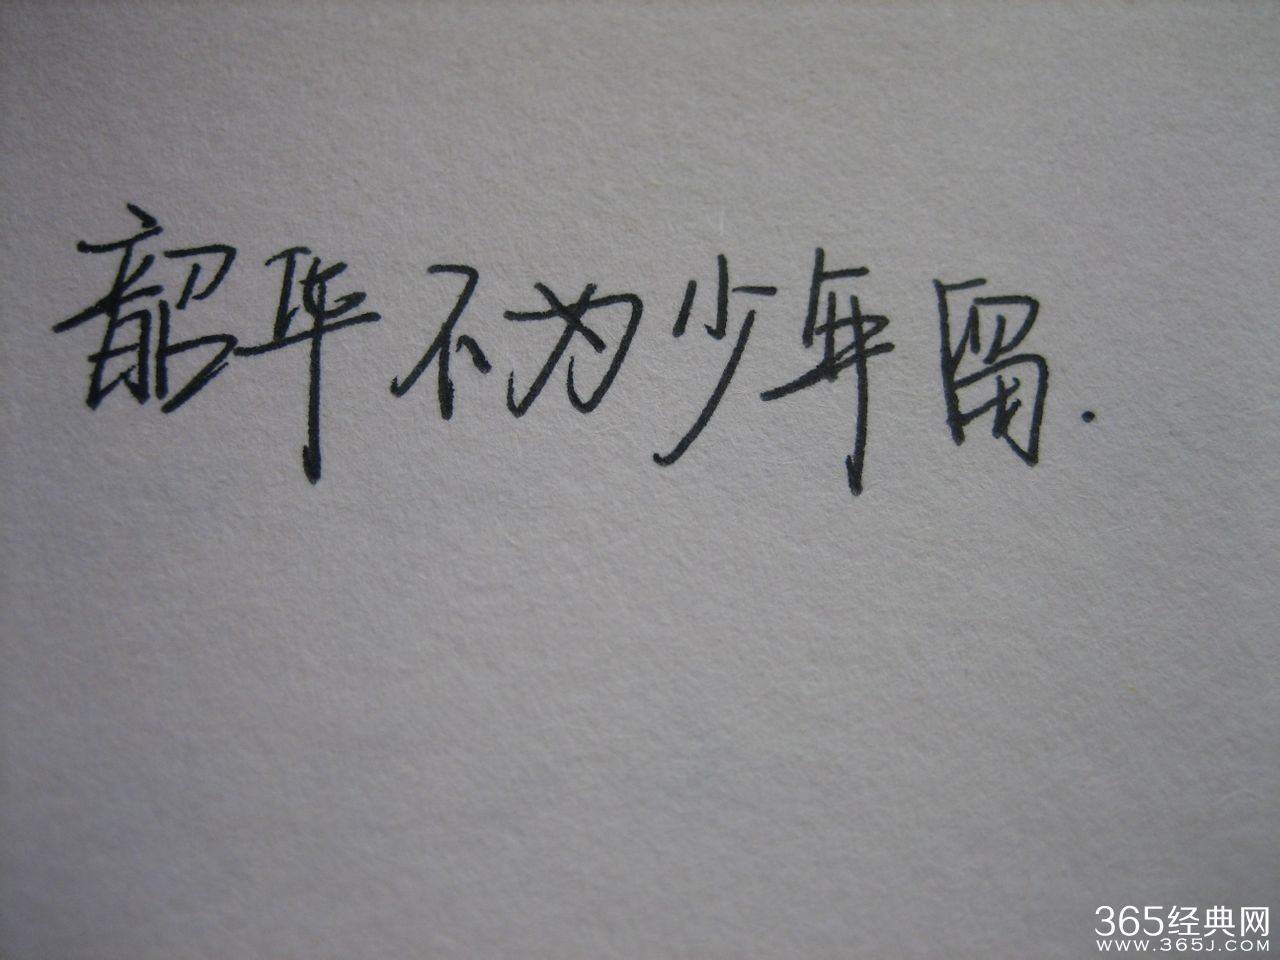 韶华不为少年留.
365经典网
WWW.365J.COM